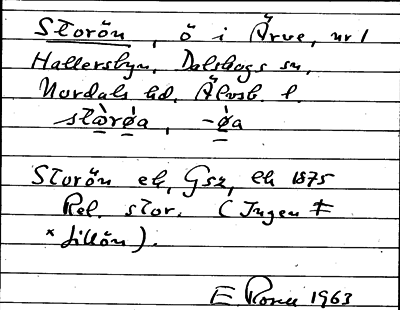 Storön, ö i Ärve, nr 1
Hallersbyn, Dalskogs sn,
Nordals hd, Älvsb. l.
stòrø̀a, -ø̀a
Storön ek, Gsz, ek 1875
Rel. stor. (Ingen ≠
*Lillön).
E 1963